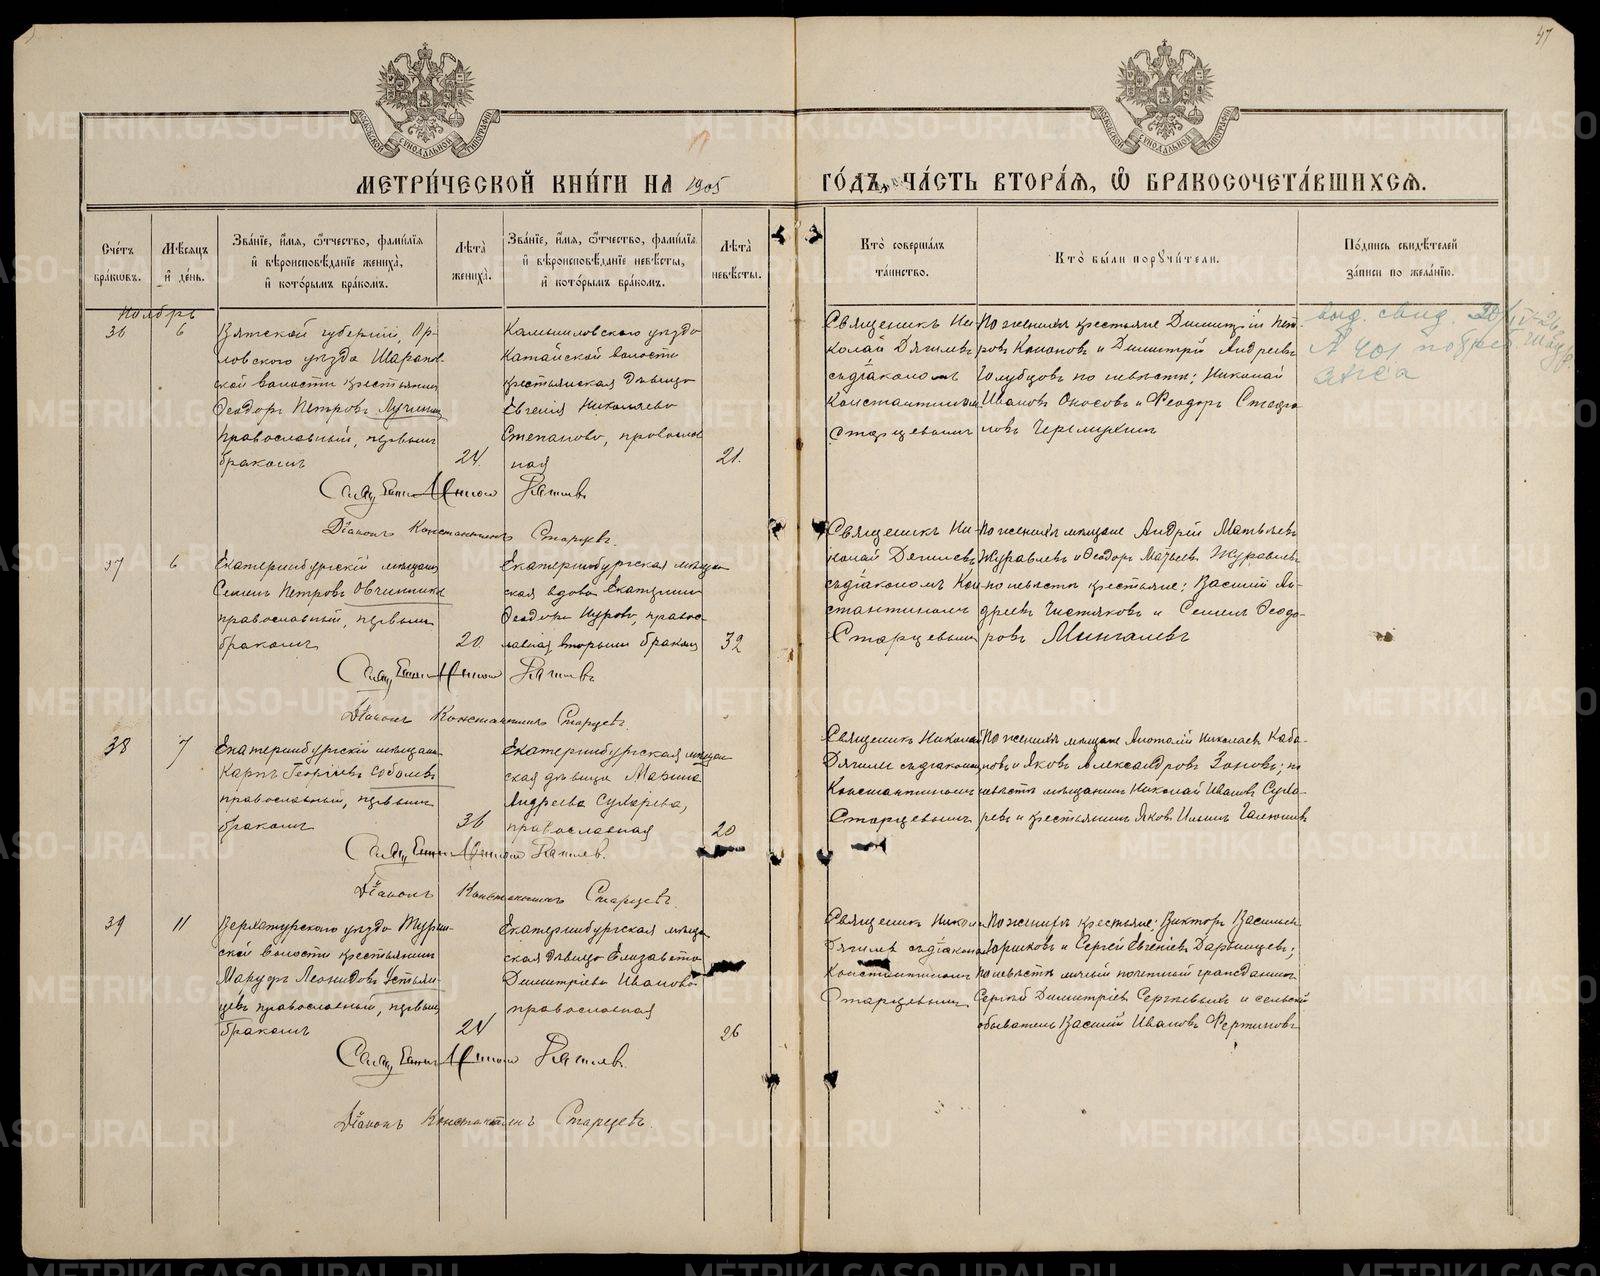 47
МОСКОВСКОЙ СѴНОДАЛЬНОЙ ТИПОГРАФІИ
МОСКОВСКОЙ СѴНОДАЛЬНОЙ ТИПОГРАФІИ
МЕТРИ́ЧЕСКОЙ КНИ́ГИ НА 1905 ГО́ДЪ, ЧА́СТЬ ВТОРА́Я, Ѽ БРАКОСОЧЕТА́ВШИХСЯ.
Сче́тъ бра́кѡвъ.
Мѣ́сяцъ и҆ де́нь.
Зва́нїе, и҆́мя, ѻ҆́тчество, фами́лїя и҆ вѣроисповѣ́данїе жениха̀, и҆ кото́рымъ бра́комъ.
Лѣ́та жениха̀.
Зва́нїе, и҆́мя, ѻ҆́тчество, фами́лїя и҆ вѣроисповѣ́данїе невѣ́сты, и҆ кото́рымъ бра́комъ.
Лѣ́та невѣ́сты.
Кто̀ соверша́лъ та́инство.
Кто̀ бы́ли пору҆чи́тели.
По́дпись свидѣ́телей за́писи по жела́нїю.
Ноябрь
36
6
Вятской губерніи, Ор-
ловскаго уѣзда Шарапов-
ской волости крестьянинъ
Ѳеодоръ Петровъ Лучининъ
православный, первымъ
бракомъ
24.
Камышловскаго уѣзда
Катайской волости
крестьянская дѣвица
Евгенія Николаева
Степанова, православ
ная
21.
Священникъ Ни-
колай Дягилевъ
съ діакономъ
Константиномъ
Старцевымъ
По женихѣ крестьяне Димитрій Пет-
ровъ Кононовъ и Димитрій Андреевъ
Голубцовъ по невѣстѣ: Николай
Ивановъ Оносовъ и Ѳеодоръ Стефа-
новъ Черемухинъ
выд. свид.
№ 401
Діаконъ Константинъ Старцевъ.
37
6
Екатеринбургскій мѣщанинъ
Семенъ Петровъ Овчинниковъ
православный, первымъ
бракомъ
20.
Екатеринбургская мѣщан
ская вдова Екатерина
Ѳеодорова православ-
лавная вторымъ бракомъ
32
Священникъ Ни-
колай Дягилевъ
съ діакономъ Кон-
стантиномъ
Старцевымъ
По женихѣ мѣщане Андрей Матвѣевъ
Журавлевъ и Ѳеодоръ Матвѣевъ Журавлевъ
по невѣстѣ крестьяне: Василій Ан-
дреевъ Чистяковъ и Семенъ Ѳеодо-
ровъ Мингалевъ
Діаконъ Константинъ Старцевъ.
38
7
Екатеринбургскій мѣщанинъ
Карпъ Георгіевъ Соболевъ
православный, первымъ
бракомъ
36
Екатеринбургская мѣщан
ская дѣвица Марина
Андреева Сухарева,
православная
20
Священникъ Николай
Дягилевъ съ діакономъ
Константиномъ
Старцевымъ
По женихѣ мѣщане Анатолій Николаевъ Каба-
новъ и Яковъ Александровъ Зоновъ; по
невѣстѣ мѣщанинъ Николай Ивановъ Суха-
ревъ и крестьянинъ Яковъ Ильинъ
Діаконъ Константинъ Старцевъ.
39
11
Верхотурскаго уѣзда Турин-
ской волости крестьянинъ
Леонидовъ Устьян-
цевъ православный, первымъ
бракомъ
24
Екатеринбургская мѣщан
ская дѣвица Елизавета
Димитріева Иванова
православная
26
Священникъ Никол.
Дягилевъ съ діакономъ
Константиномъ
Старцевымъ
По женихѣ крестьяне: Викторъ Васильевъ
и Сергѣй Евгеніевъ
по невѣстѣ личный почетный гражданинъ
Сергѣй Димитріевъ Сергѣевыхъ и сельскій
обыватель Василій Ивановъ Фертиковъ
Діаконъ Константинъ Старцевъ.
METRIKI.GASO-URAL.RU